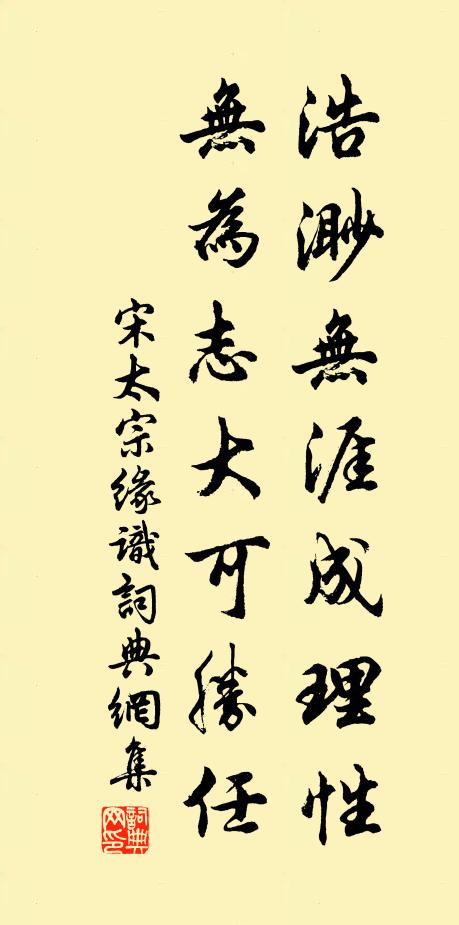 浩渺無涯成理性
無為志大可勝任
宋太宗緣識詞典網集
詞典網印